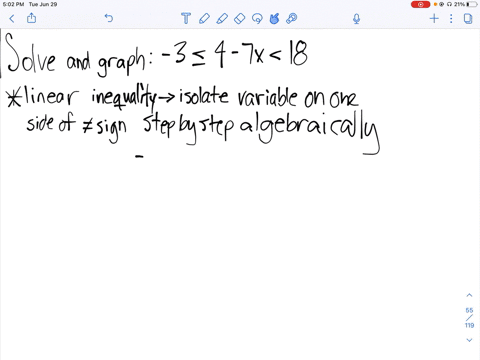 5:02 PM Tue Jun 29
21%
Solve and graph: -3 ≤ 4 - 7x < 18
*linear inequality → isolate variable on one
side of ≠ sign step by step algebraically
-
55
/
119